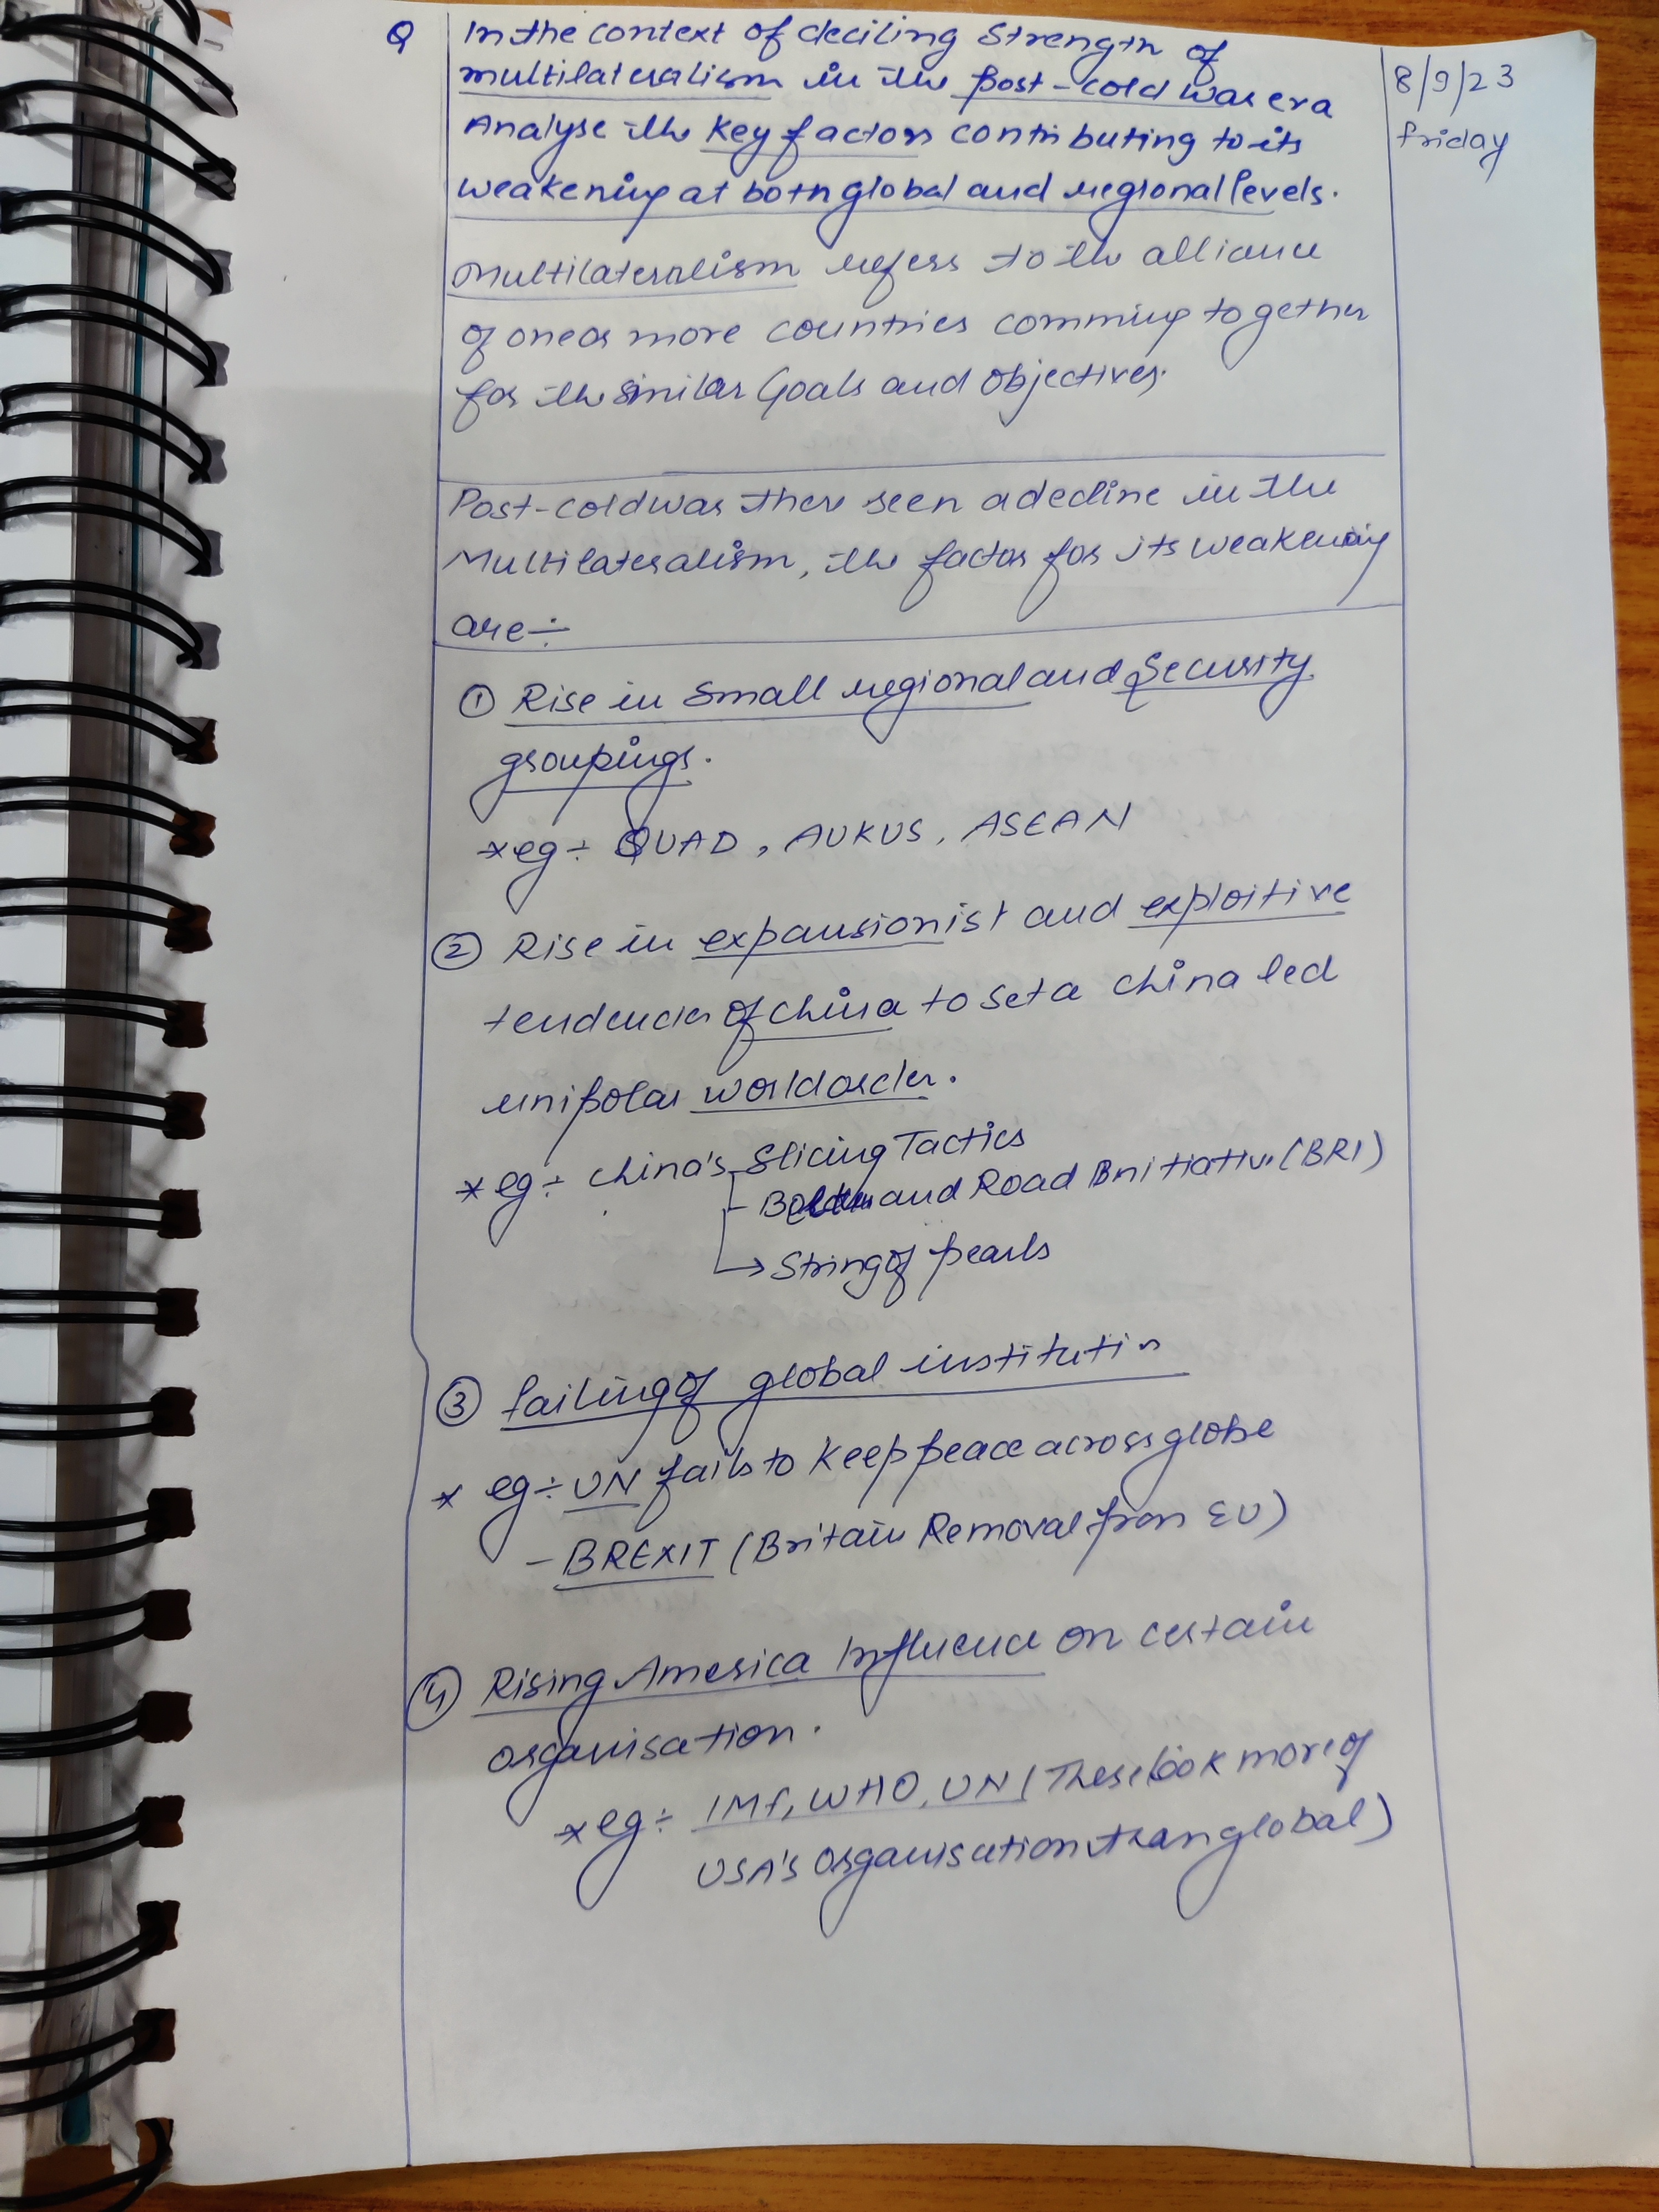 Q In the context of deciling Strength of
multilateralism in the post-cold war era
Analyse the key factors contributing to its
weakening at both global and regional levels.
8/9/23
friday
Multilateralism refers to the alliance
of one or more countries comming together
for the similar Goals and objectives.
Post-cold war there seen a decline in the
Multilateralism, the factor for its weakening
are÷
① Rise in small regional and security
groupings.
* eg ÷ QUAD, AUKUS, ASEAN
② Rise in expansionist and exploitive
tendencies of china to set a china led
unipolar world order.
* eg ÷ china's Slicing Tactics
- Belt and Road Initiative (BRI)
→ String of pearls
③ failing of global institutin
* eg ÷ UN fails to keep peace across globe
- BREXIT (Britain Removal from EU)
④ Rising America Influence on certain
organisation.
* eg ÷ IMF, WHO, UN (These look more of
USA's organisation than global)